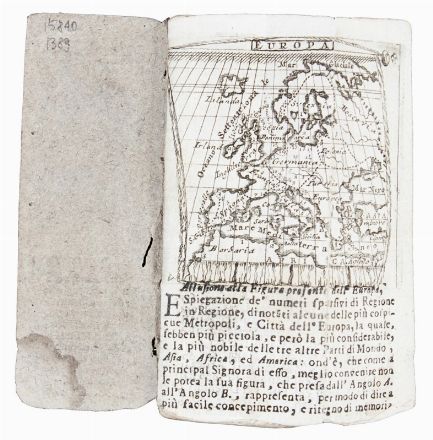 15840
1389
EUROPA
Mar
Islanda
Germania
Mar Nero
Mare M terra
Barbaria
Allusione alla Figura presente dell' Europa,
E Spiegazione de' numeri sparsivi di Regione
in Regione, dinotāti alcune delle più cospi-
cue Metropoli, e Città dell' Europa, la quale,
sebben più picciola, e però la più considerabile,
e la più nobile delle tre altre Parti di Mondo,
Asia, Africa, ed America: ond'è, che come a
principal Signora di esso, meglio convenire non
le potea la sua figura, che presa dall' Angolo A.
all' Angolo B., rappresenta, per modo di dire a
più facile concepimento, e ritegno di memori-